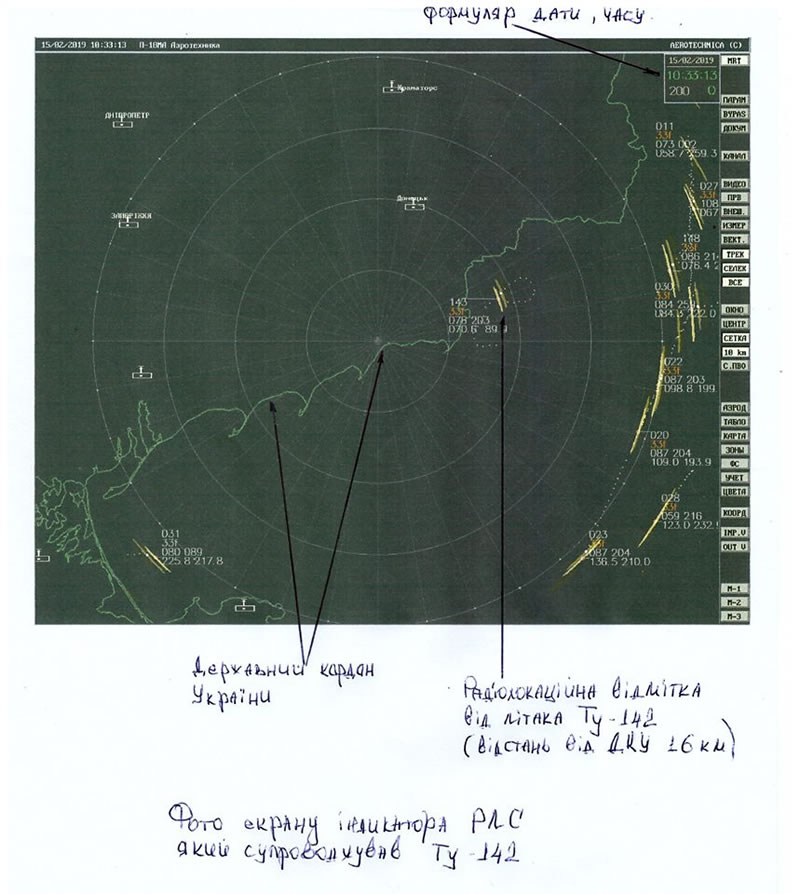 Формуляр дати, часу
15/02/2019 10:33:13 П-18МА Аэротехника
AEROTECHNICA (C)
15/02/2019
10:33:13
200 0
МRТ
ПАРАМ
BYPAS
ДОКУМ
КАНАЛ
ВИДЕО
ПРВ
ВНЕШ.
ИЗМЕР
ВЕКТ.
ТРЕК
СЕЛЕК
ВСЕ
ОКНО
ЦЕНТР
СЕТКА
10 km
С.ПВО
АЭРОД
ТАБЛО
КАРТА
ЗОНЫ
ФС
УЧЕТ
ЦВЕТА
КООРД
IMP.V
OUT V
М-1
М-2
М-3
Краматорс
ДНІПРОПЕТР
Донецьк
ЗАПОРІЖЖЯ
011
33f
073 002
027
33f
108
067
148
33f
086 21
076.4 2
030
33f
143
33f
078 203
022
33f
087 203
098.8 199
020
33f
087 204
109.0 193.9
028
33f
059 216
123.0 232.
023
33f
087 204
136.5 210.0
031
33f
080 089
225.8 217.8
Державний кордон
України
Радіолокаційна відмітка
від літака Ту-142
(відстань від ДКУ 16 км)
Фото екрану індикатора РЛС
який супроводжував Ту-142